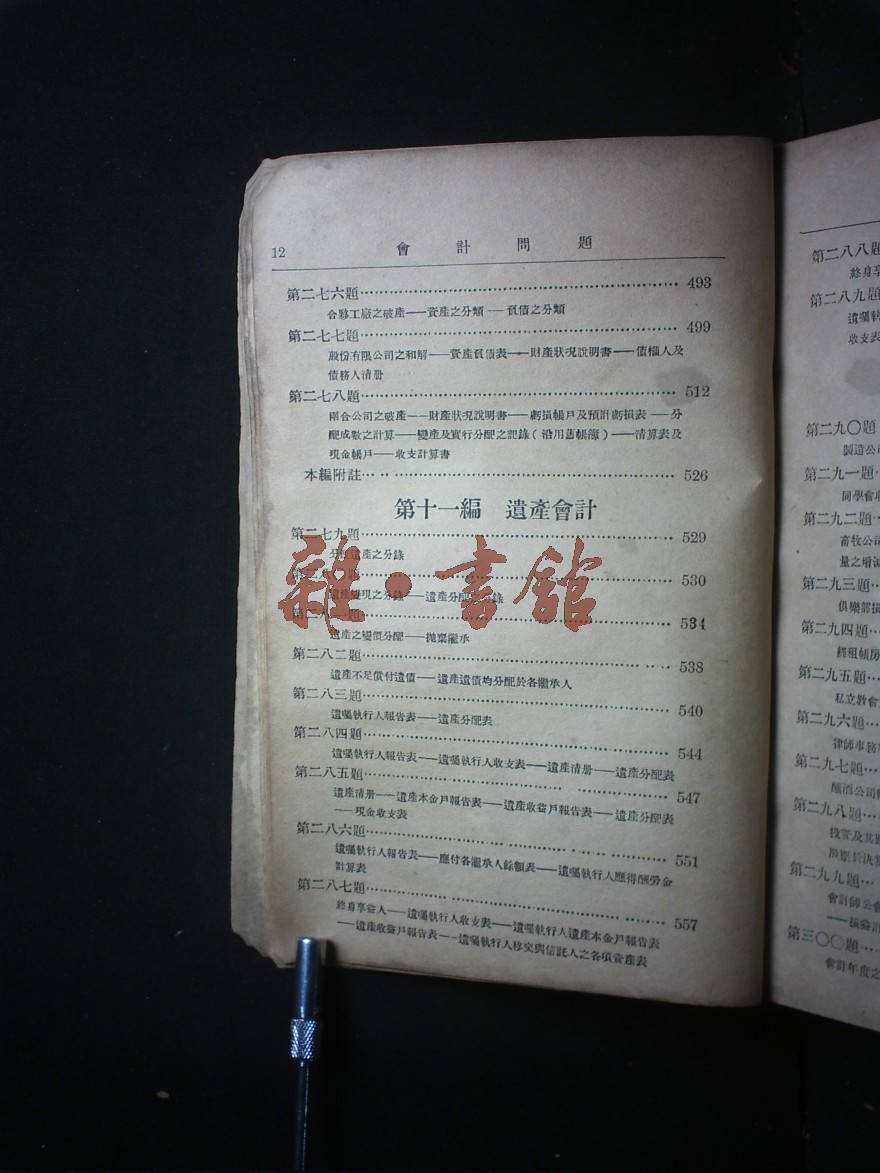 12 會計問題
第二七六題 493
合夥工廠之破產——資產之分類——負債之分類
第二七七題 499
股份有限公司之和解——資產負債表——財產狀況說明書——債權人及
債務人清册
第二七八題 512
兩合公司之破產——財產狀況說明書——虧損帳戶及預計虧損表——分
配成數之計算——變產及實行分配之記錄（沿用舊帳簿）——清算表及
現金帳戶——收支計算書
本編附註 526
第十一編 遺產會計
第二七九題 529
遺產之分錄
題 530
遺產變現之分錄——遺產分配錄
534
遺產之變價分配——拋棄繼承
第二八二題 538
遺產不足償付遺債——遺產遺債均分配於各繼承人
第二八三題 540
遺囑執行人報告表——遺產分配表
第二八四題 544
遺囑執行人報告表——遺囑執行人收支表——遺產清册——遺產分配表
第二八五題 547
遺產清册——遺產本金戶報告表——遺產收益戶報告表——遺產分配表
——現金收支表
第二八六題 551
遺囑執行人報告表——應付各繼承人餘額表——遺囑執行人應得酬勞金
計算表
第二八七題 557
終身享益人——遺囑執行人收支表——遺囑執行人遺產本金戶報告表
——遺產收益戶報告表——遺囑執行人移交與信託人之各項資產表
雜·書館
第二八八題
終身享
第二八九題
遺囑執
收支表
第二九〇題
製造公司
第二九一題
同學會
第二九二題
畜牧公司
量之增減
第二九三題
俱樂部
第二九四題
經租帳房
第二九五題
私立教會
第二九六題
律師事務
第二九七題
釀酒公司
第二九八題
投資及其
第二九九題
會計師公會
第三〇〇題
會計年度之